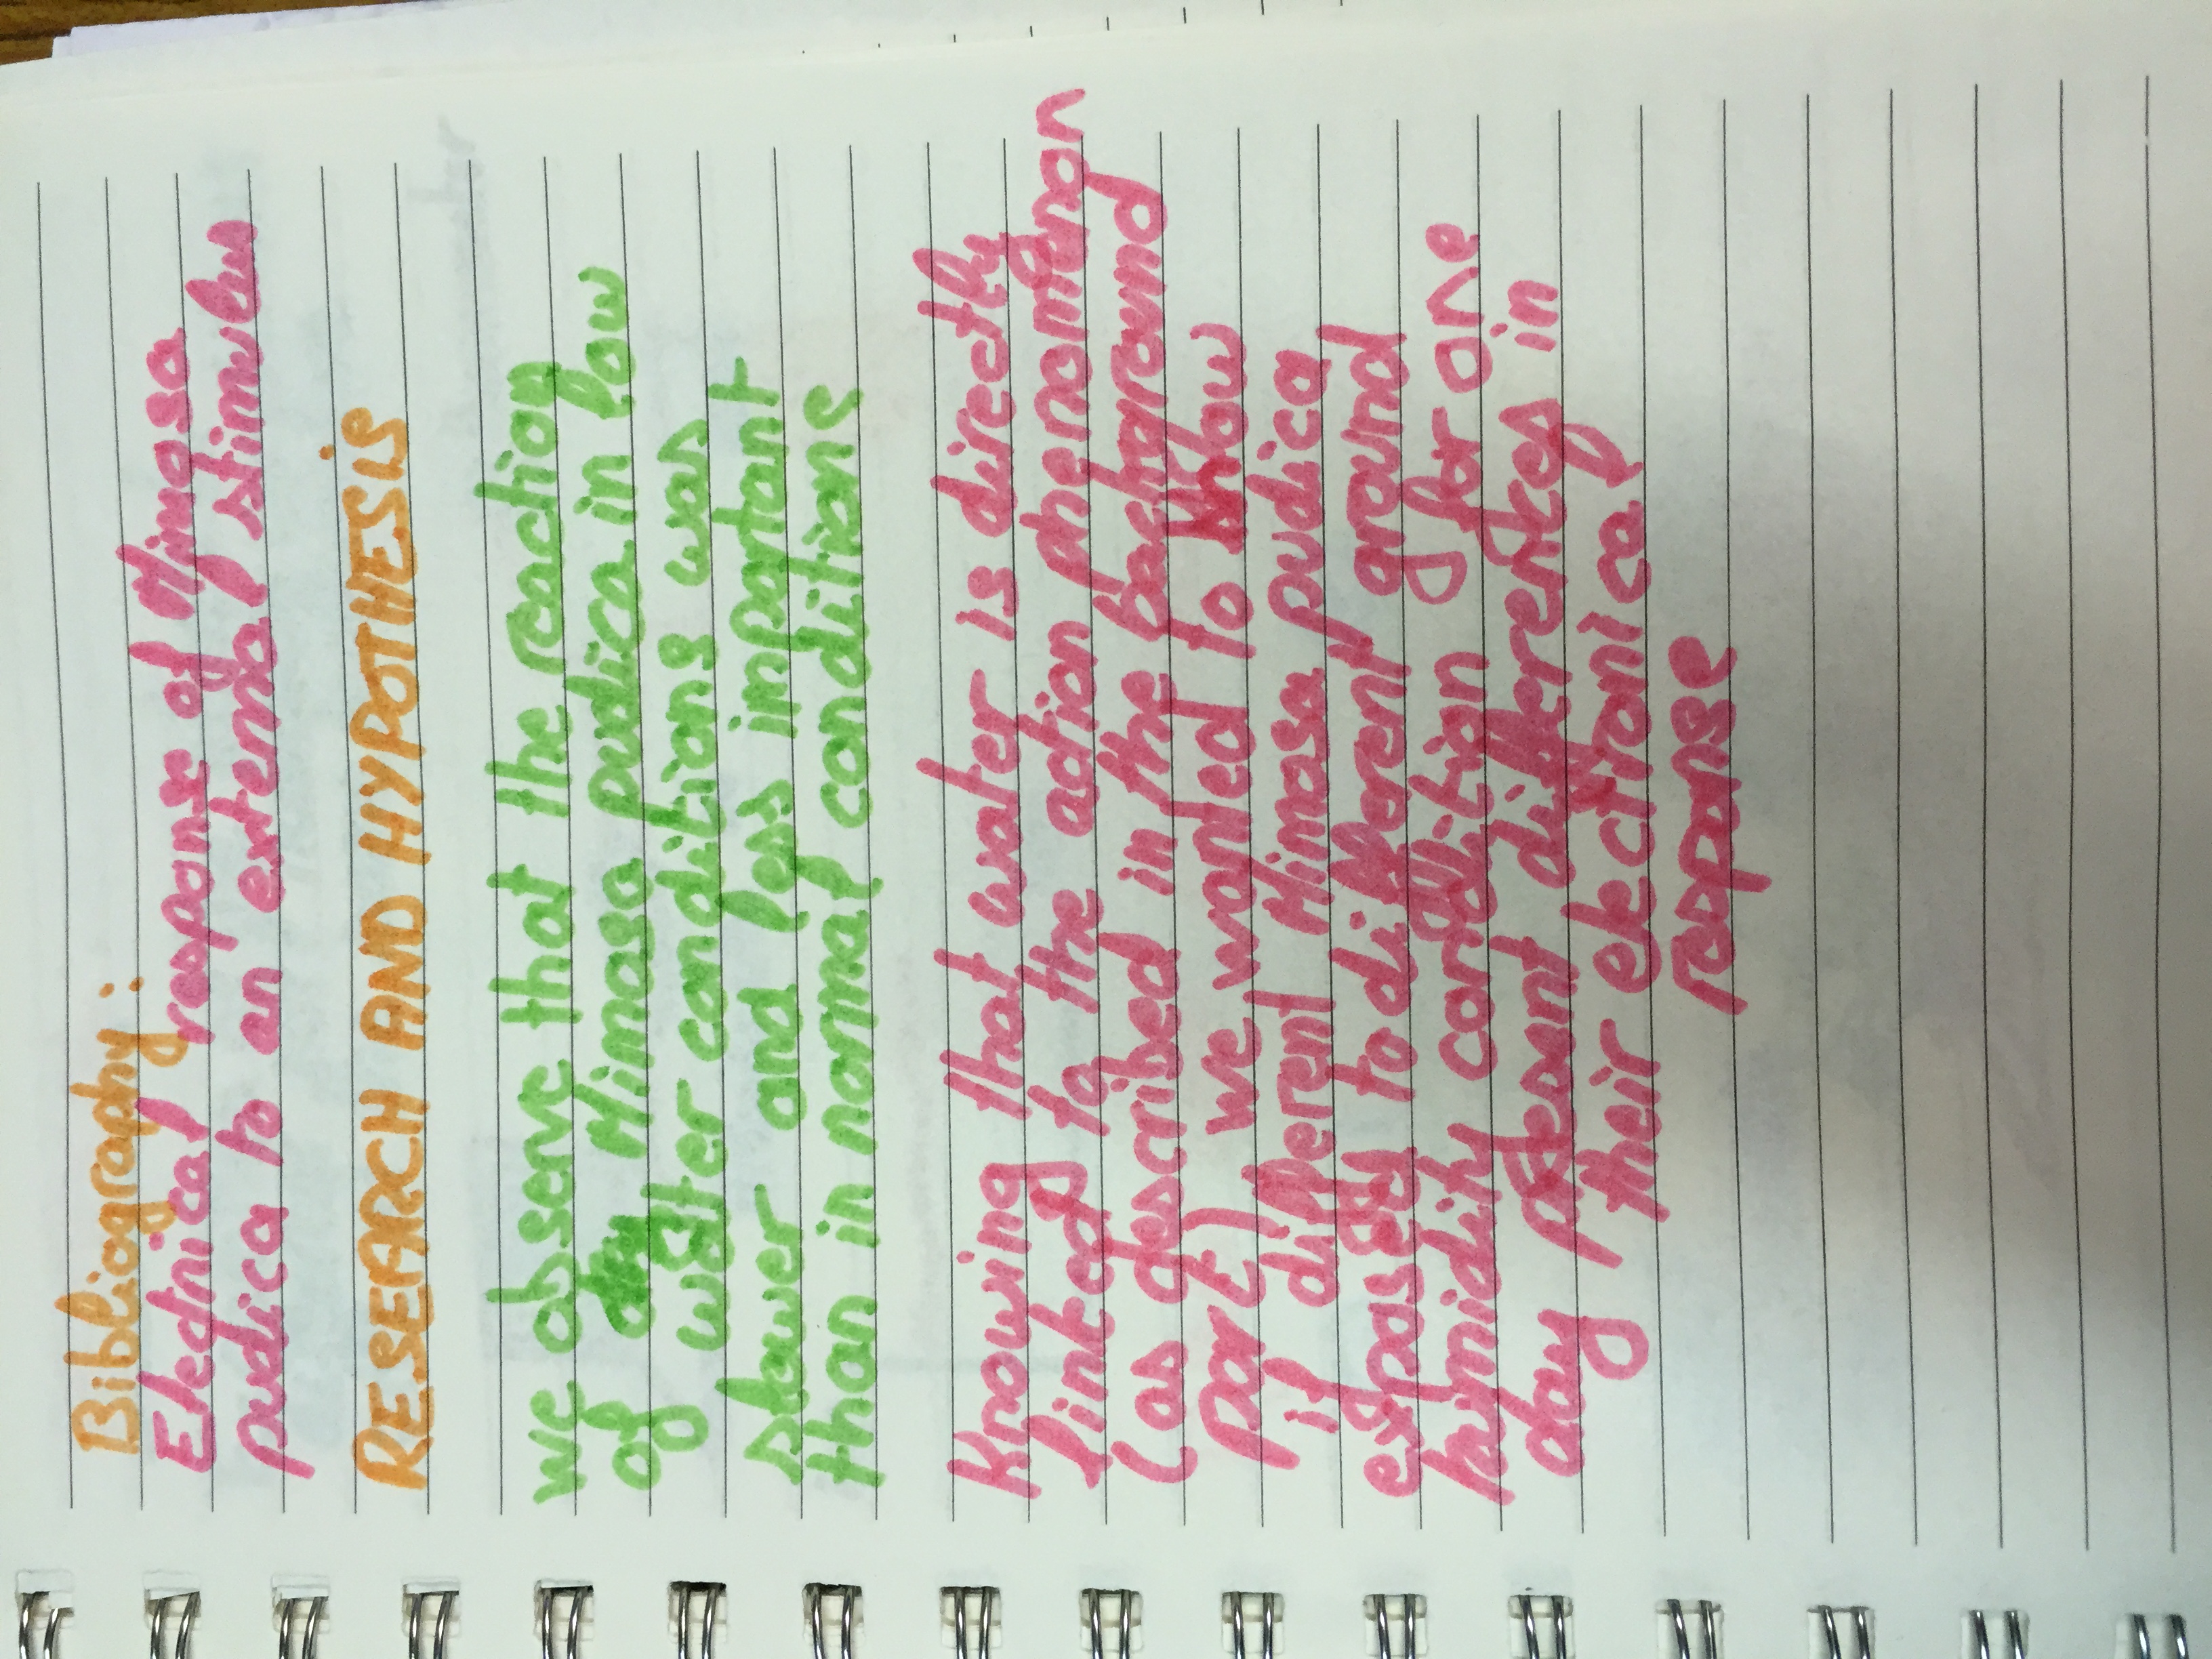 Bibliography :
Electrical response of Mimosa
pudica to an external stimulus
RESEARCH AND HYPOTHESIS
we observe that the reaction
of dry Mimosa pudica in low
water conditions was
slower and less important
than in normal conditions
Knowing that water is directly
linked to the action phenomenon
(as described in the background
part), we wanted to know
if different Mimosa pudica
exposed to different ground
humidity condition for one
day present differences in
their electronical
response